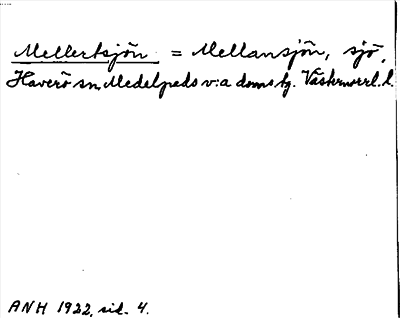 Mellertsjön = Mellansjön, sjö,
Haverö sn, Medelpads v:a doms.tg. Västernorrl. l.
ANH 1922, sid. 4.